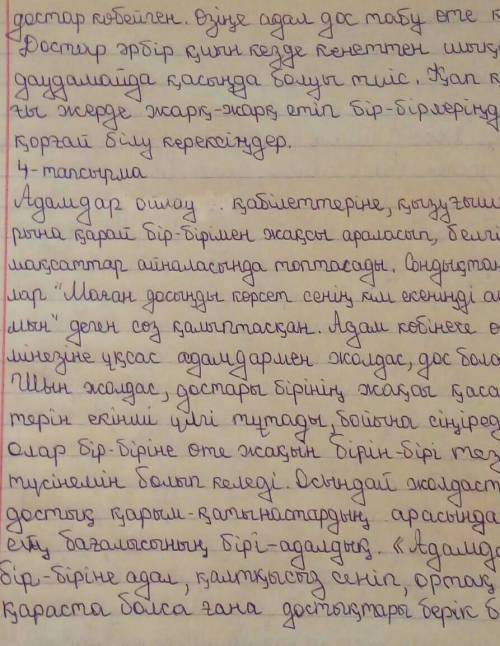 достар көбейген. Өзіңе адал дос табу өте
Достар әрбір қиын кезде кенеттен
даудамайда қасыңда болуы тиіс. Қап
ғы жерде жарқ-жарқ етіп бір-бірлеріңд
қорғай білу керексіңдер.
4-тапсырма
Адамдар ойлау .. қабілеттеріне, қызуғыш
рына қарай бір-бірімен жақсы араласып, белгі
мақсаттар айналасында топтасады. Сондықтан
лар "Маған досыңды көрсет сенің кім екеніңді
мын" деген сөз қалыптасқан. Адам көбінесе ө
мінезіне ұқсас адамдармен жолдас, дос бола
Шын жолдас, достары бірінің жақсы қаса
терін екінші үлгі тұтады, бойына сіңіред
олар бір-біріне өте жақын бірін-бірі тез
түсінемін болып келеді. Осындай жолдаст
достық қарым-қатынастардың арасында
ең бағалысының бірі-адалдық. «Адамда
бір-біріне адал, қалтқысыз сеніп, ортақ
қараста болса ғана достықтары берік б